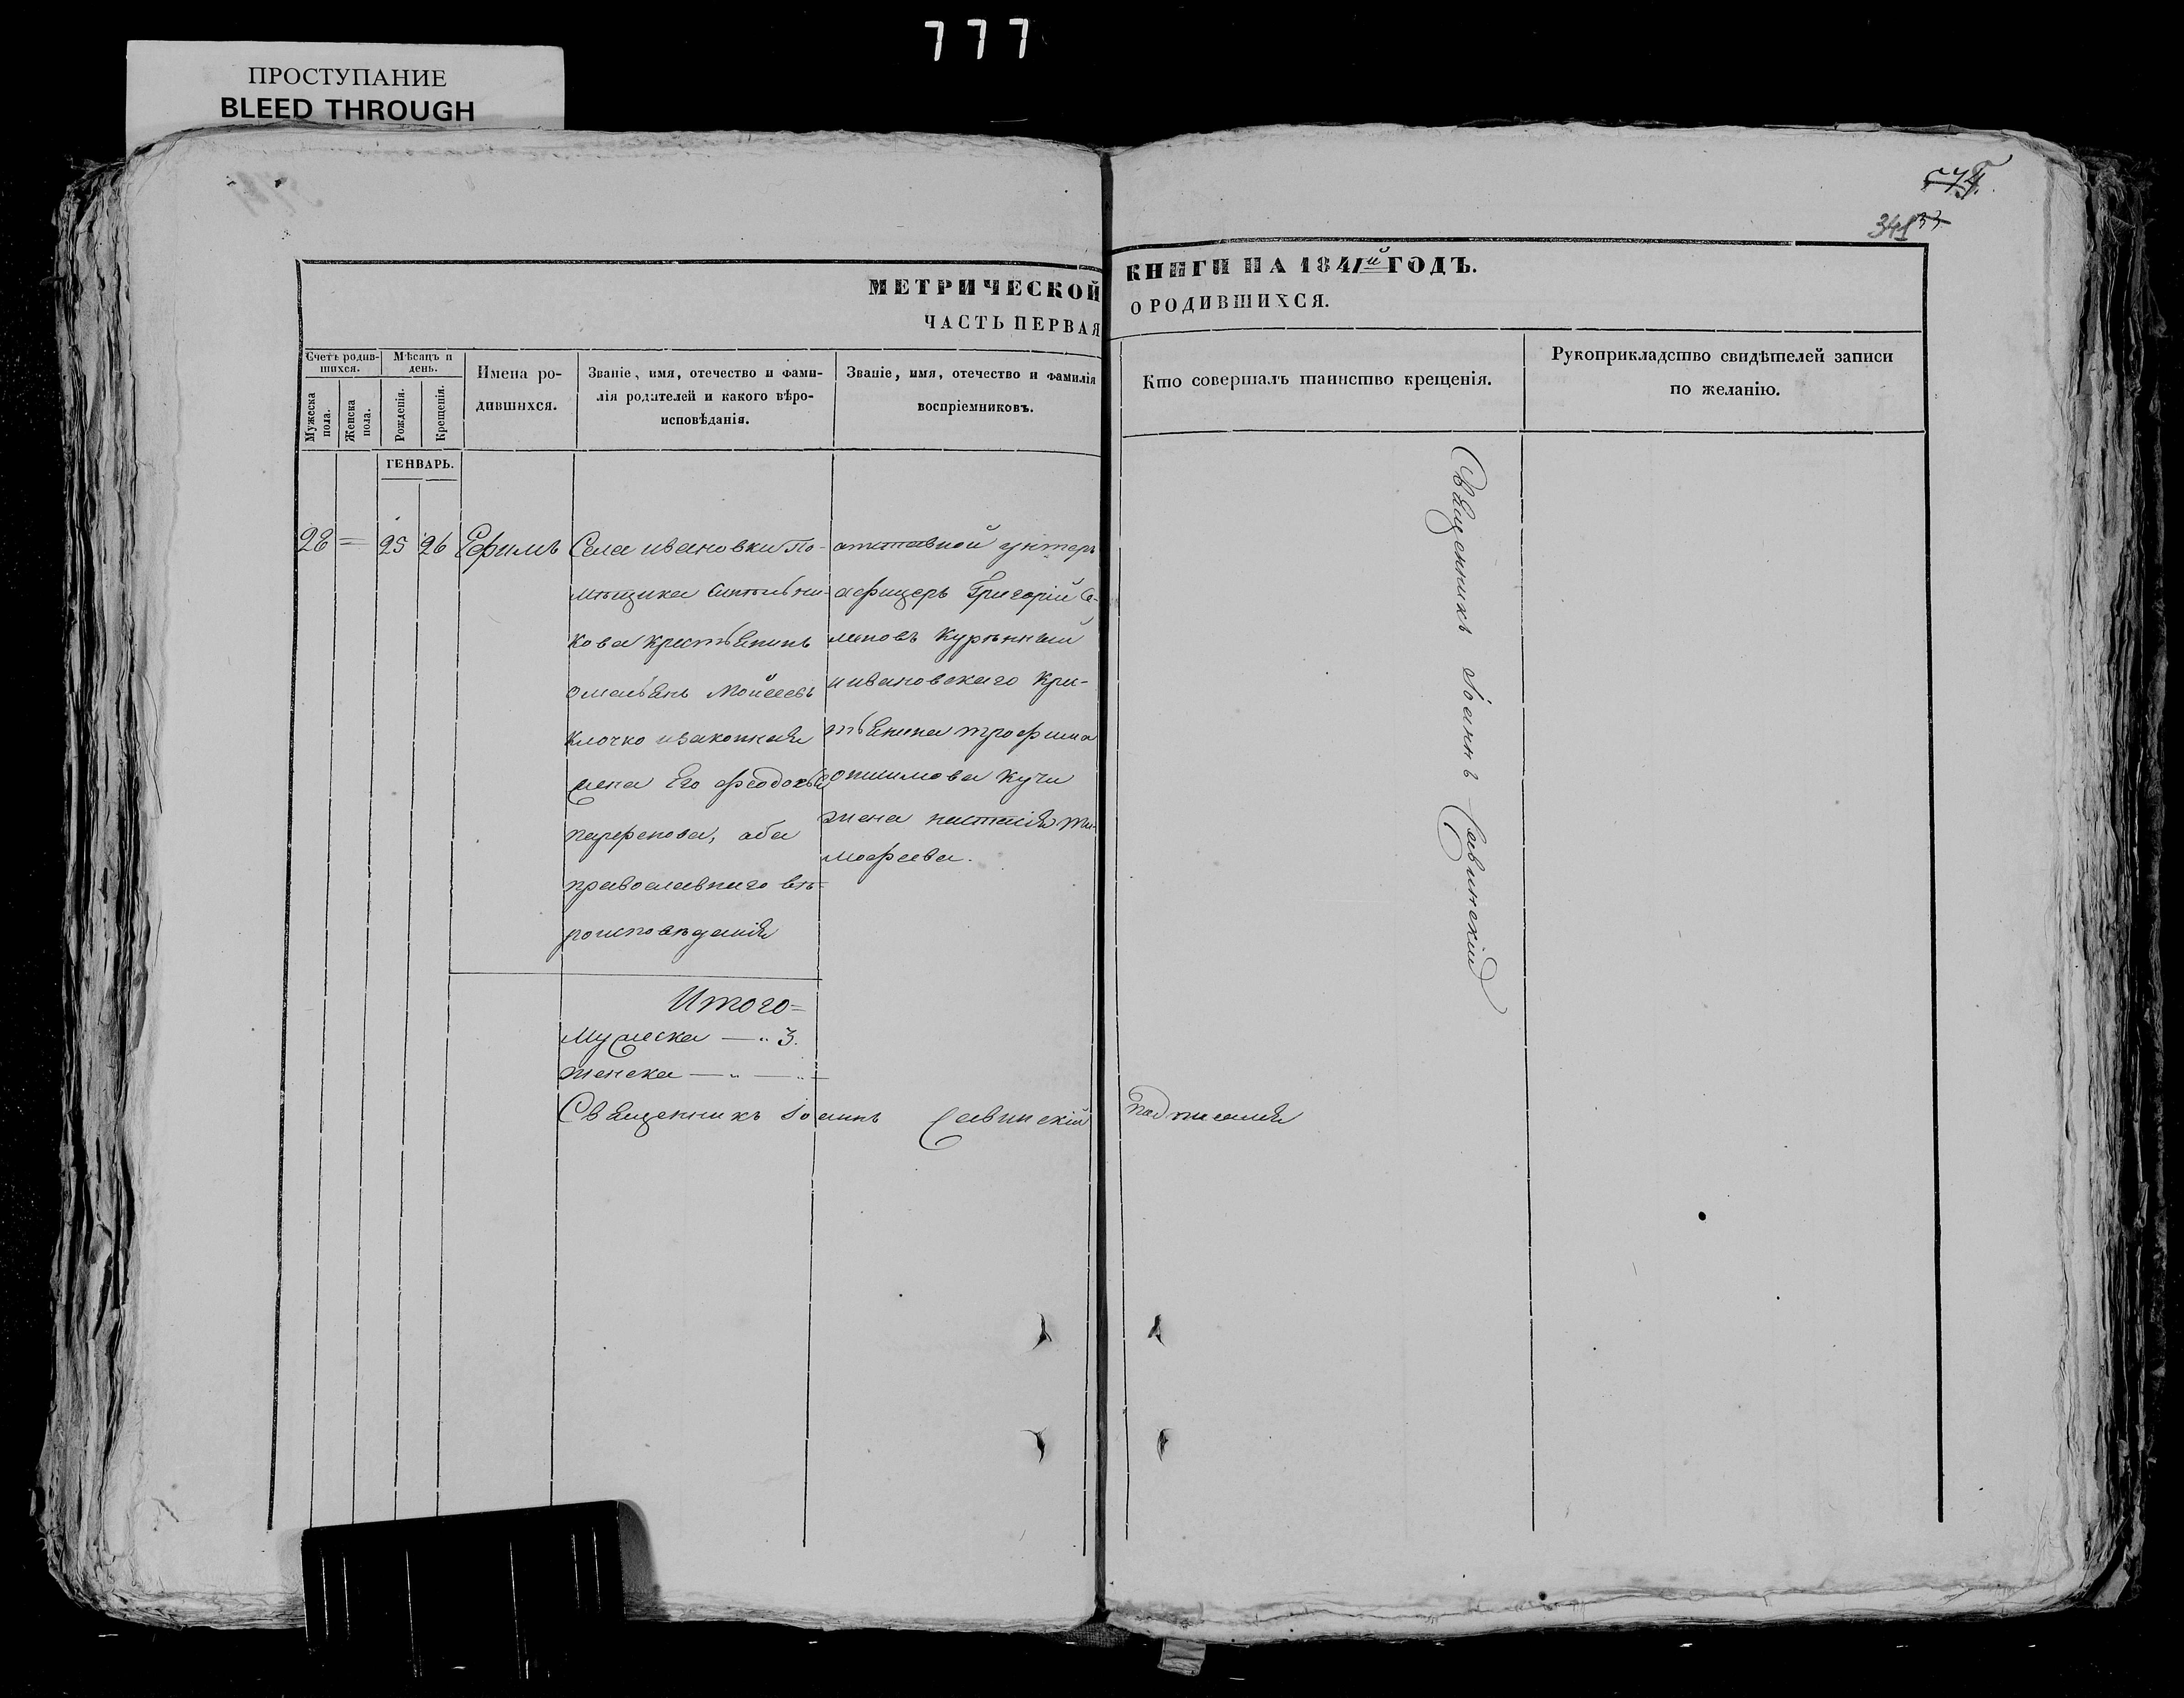 777
ПРОСТУПАНИЕ
BLEED THROUGH
341 33
МЕТРИЧЕСКОЙ КНИГИ НА 1841й ГОДЪ.
ЧАСТЬ ПЕРВАЯ О РОДИВШИХСЯ.
Счетъ родившихся.
Мужеска пола.
Женска пола.
Мѣсяцъ и день.
Рожденія.
Крещенія.
Имена родившихся.
Званіе, имя, отечество и фами-
лія родителей и какого вѣро-
исповѣданія.
Званіе, имя, отечество и фамилія
воспріемниковъ.
Кто совершалъ таинство крещенія.
Рукоприкладство свидѣтелей записи
по желанію.
ГЕНВАРЬ.
28 = 25 26 Ефимъ
Села ивановки По-
мѣщика
кова крестьянинъ
омельянъ Мойсеевъ
Клочко изаконная
жена Его феодосья
парфенова, оба
православнаго вѣ-
роисповѣданія
отставной унтеръ
офицеръ Григорій Се-
меновъ Курѣнный
иивановскаго Кре-
стьянина трофима
Кучи
жена настасія ти-
мофеева.
Священникъ Іоаннъ Савинскій
Итого =
Мужеска — „ 3.
Женска — „ — „ —
Священникъ Іоаннъ Савинскій подписался